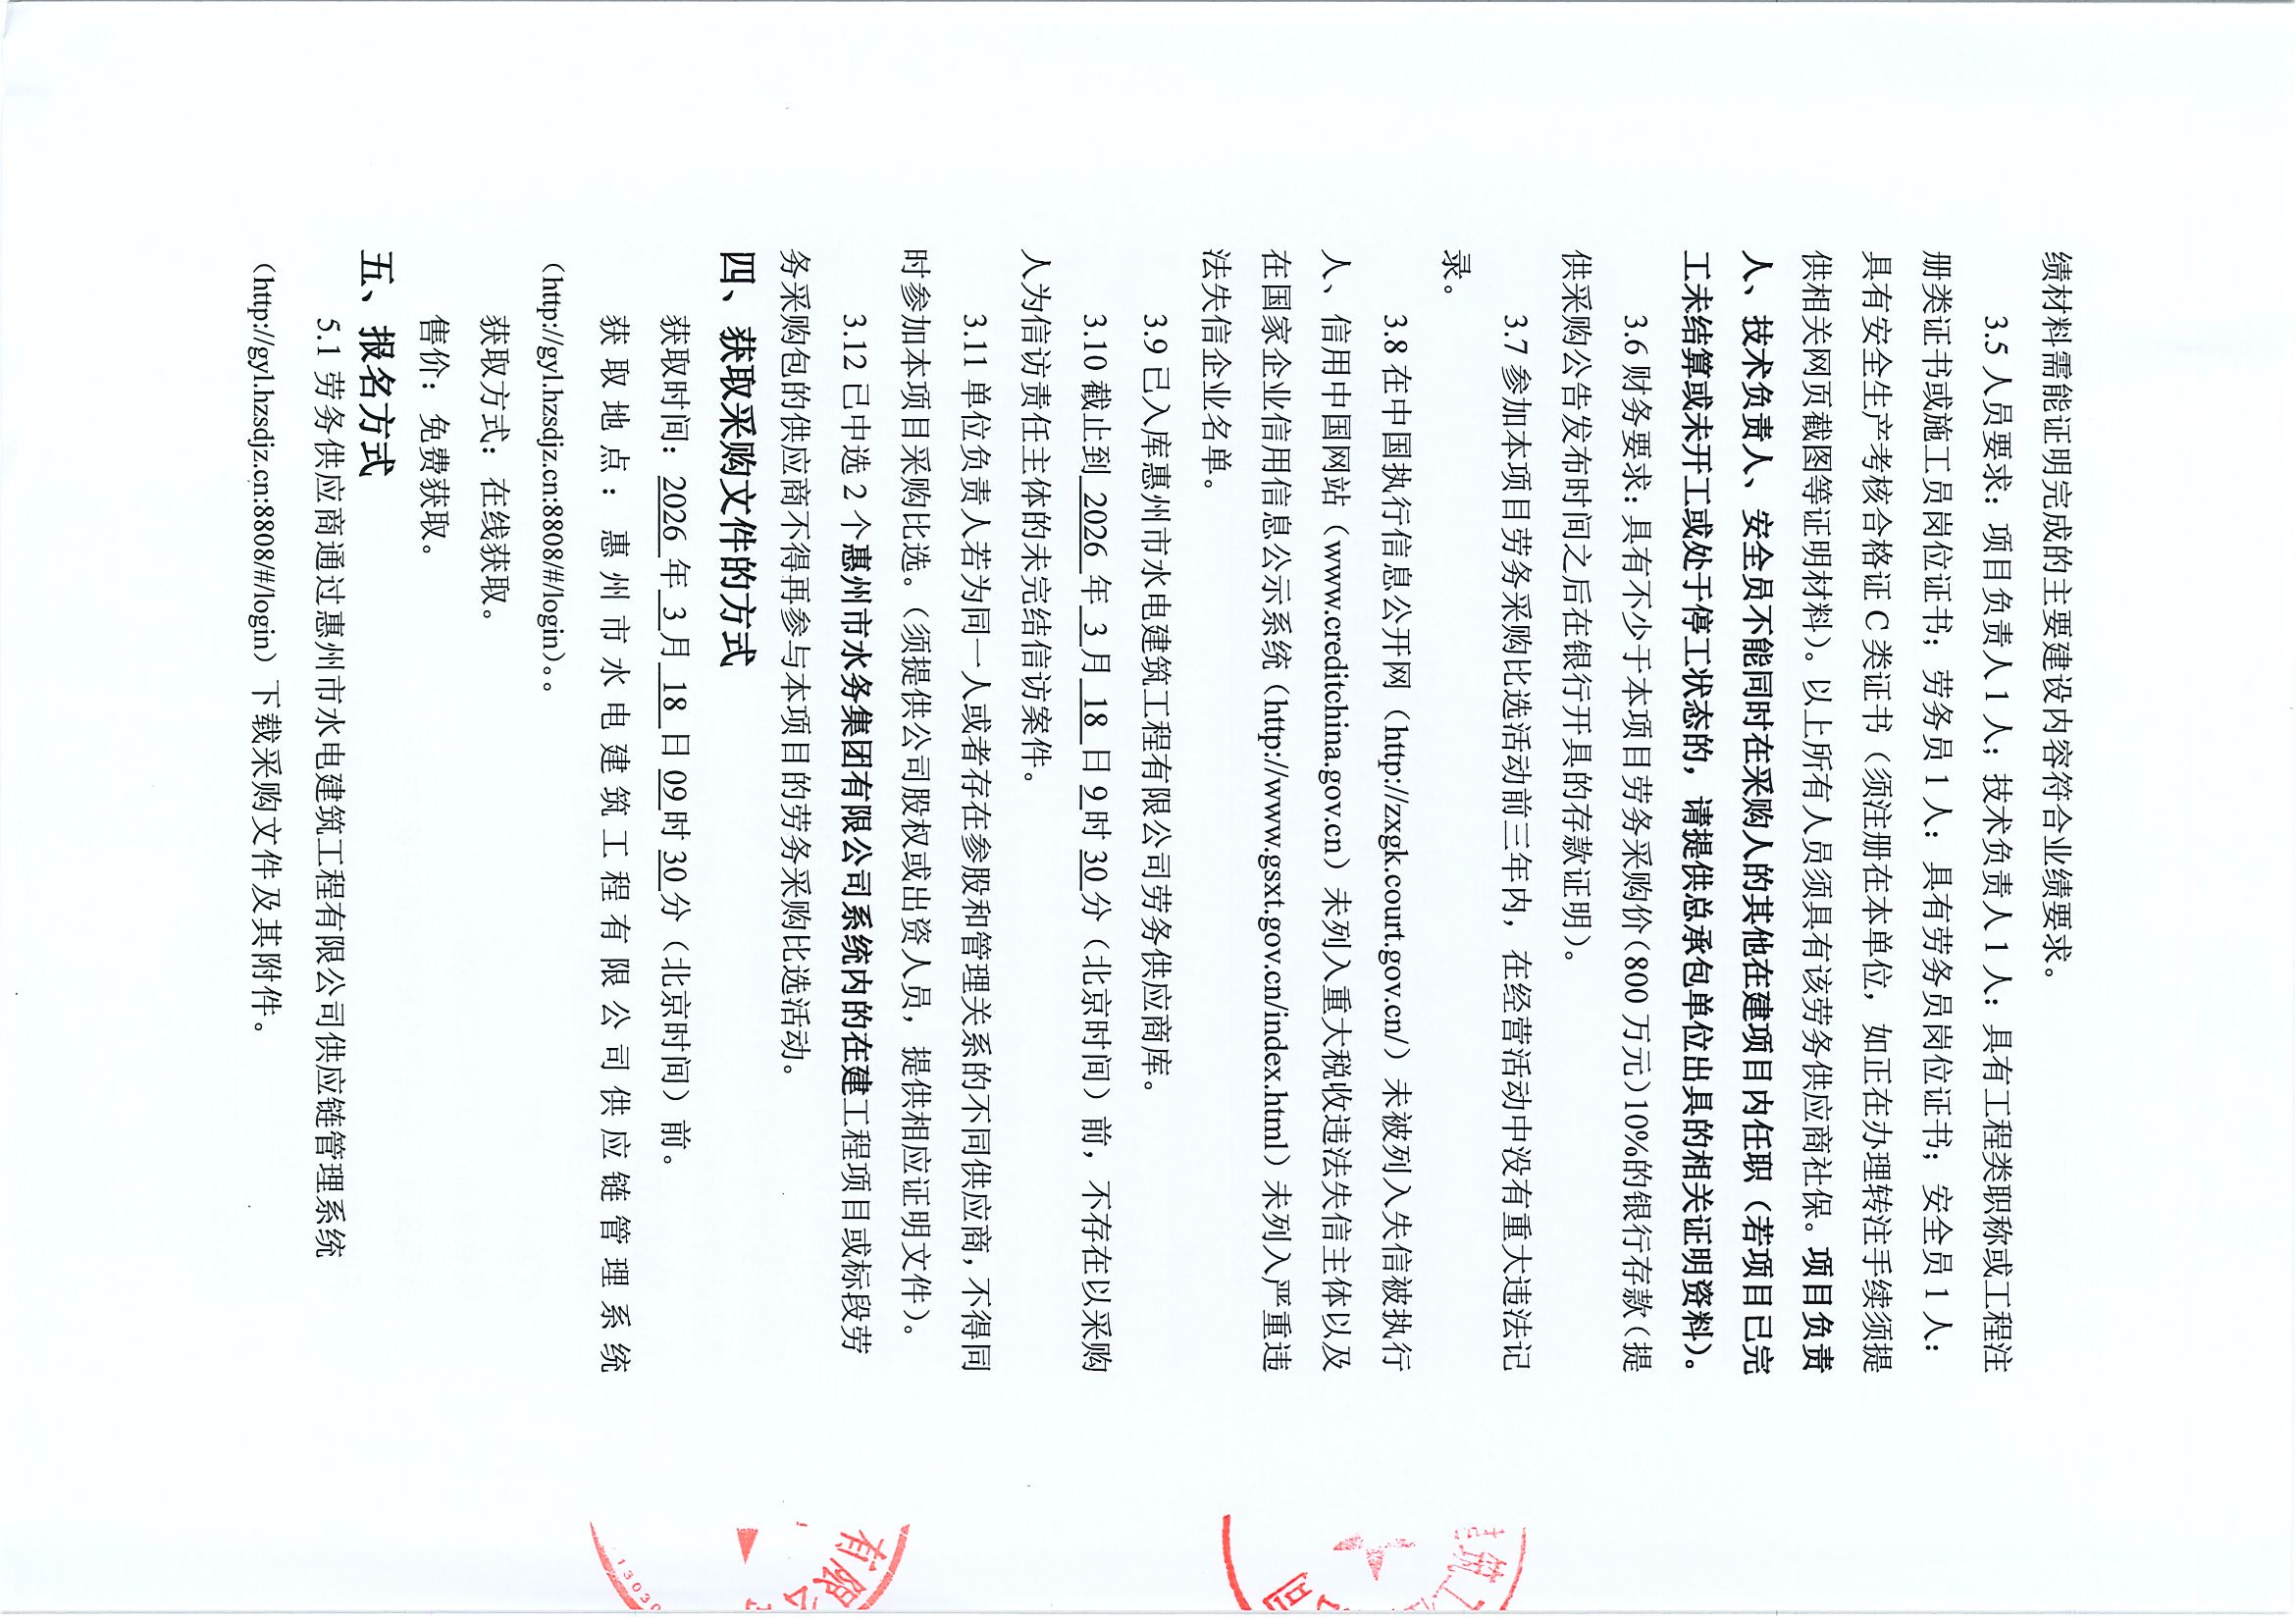 绩材料需能证明完成的主要建设内容符合业绩要求。
3.5 人员要求：项目负责人 1 人；技术负责人 1 人：具有工程类职称或工程注
册类证书或施工员岗位证书；劳务员 1 人：具有劳务员岗位证书；安全员 1 人：
具有安全生产考核合格证 C 类证书（须注册在本单位，如正在办理转注手续须提
供相关网页截图等证明材料）。以上所有人员须具有该劳务供应商社保。项目负责
人、技术负责人、安全员不能同时在采购人的其他在建项目内任职（若项目已完
工未结算或未开工或处于停工状态的，请提供总承包单位出具的相关证明资料）。
3.6 财务要求：具有不少于本项目劳务采购价（800 万元）10%的银行存款（提
供采购公告发布时间之后在银行开具的存款证明）。
3.7 参加本项目劳务采购比选活动前三年内，在经营活动中没有重大违法记
录。
3.8 在中国执行信息公开网（http://zxgk.court.gov.cn/）未被列入失信被执行
人、信用中国网站（www.creditchina.gov.cn）未列入重大税收违法失信主体以及
在国家企业信用信息公示系统（http://www.gsxt.gov.cn/index.html）未列入严重违
法失信企业名单。
3.9 已入库惠州市水电建筑工程有限公司劳务供应商库。
3.10 截止到 2026 年 3 月 18 日 9 时 30 分（北京时间）前，不存在以采购
人为信访责任主体的未完结信访案件。
3.11 单位负责人若为同一人或者存在参股和管理关系的不同供应商，不得同
时参加本项目采购比选。（须提供公司股权或出资人员，提供相应证明文件）。
3.12 已中选 2 个惠州市水务集团有限公司系统内的在建工程项目或标段劳
务采购包的供应商不得再参与本项目的劳务采购比选活动。
四、获取采购文件的方式
获取时间：2026 年 3 月 18 日 09 时 30 分（北京时间）前。
获取地点：惠州市水电建筑工程有限公司供应链管理系统
（http://gyl.hzsdjz.cn:8808/#/login）。。
获取方式：在线获取。
售价：免费获取。
五、报名方式
5.1 劳务供应商通过惠州市水电建筑工程有限公司供应链管理系统
（http://gyl.hzsdjz.cn:8808/#/login）下载采购文件及其附件。
筑工
司
有限公
13030